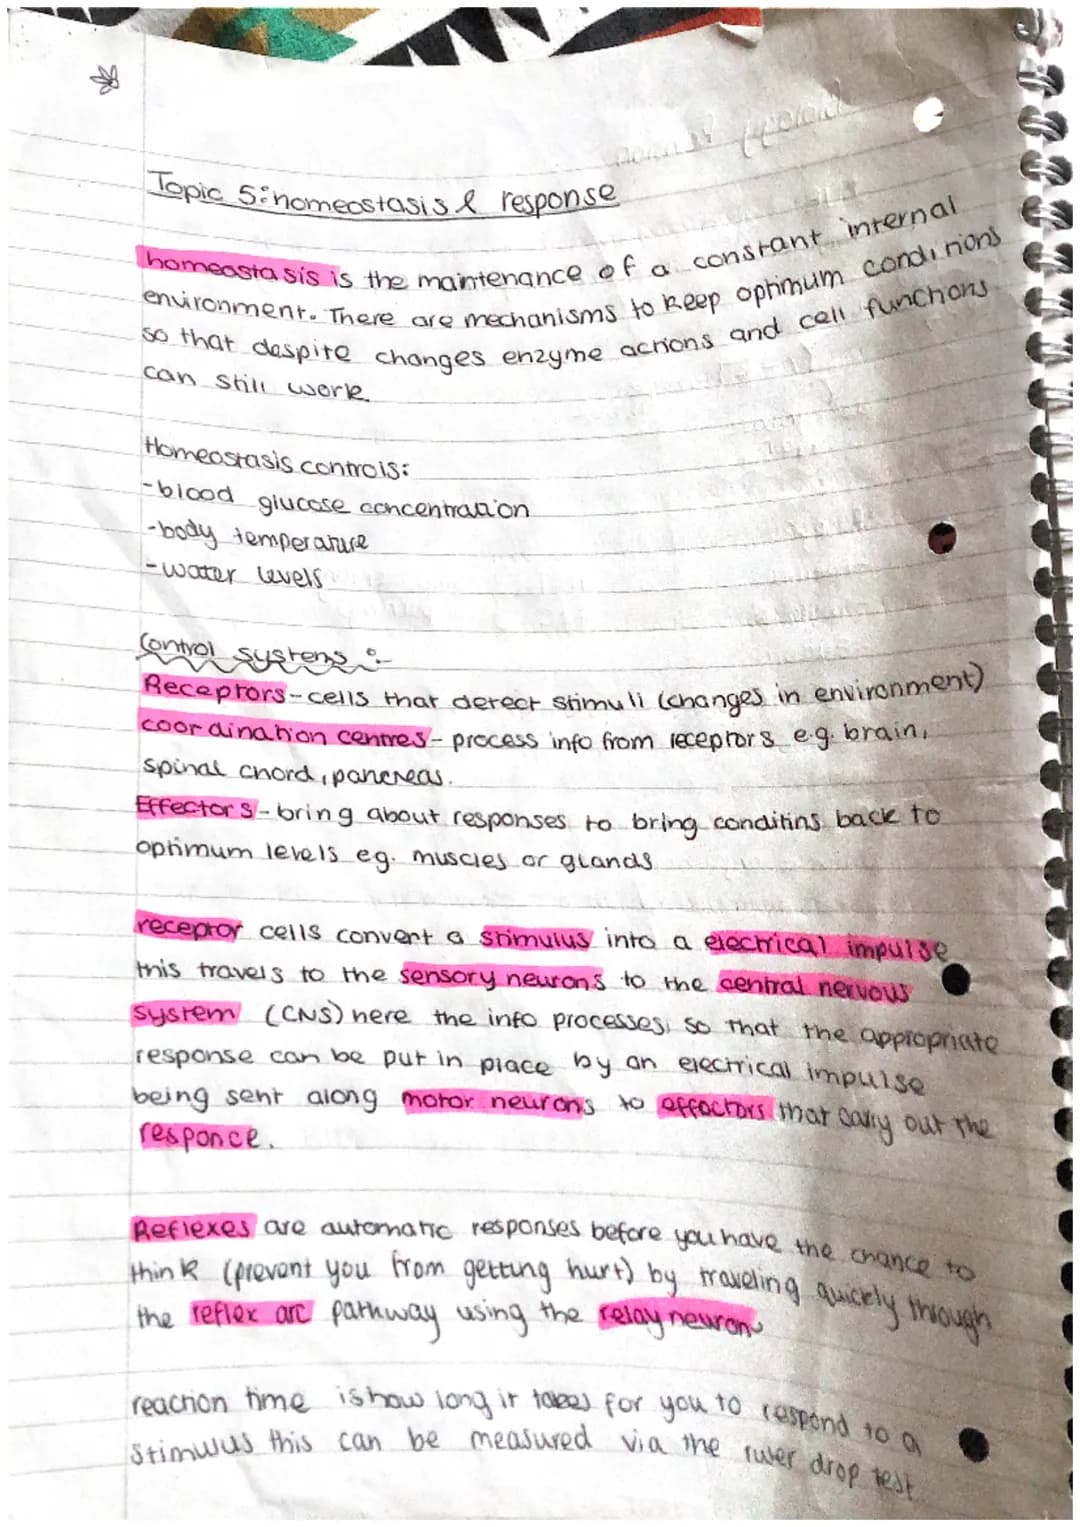 Topic 5: homeostasis & response
homeostasis is the maintenance of a constant internal
environment. There are mechanisms to keep optimum conditions
so that despite changes enzyme actions and cell functions
can still work
Homeostasis controls:
-blood glucose concentration
-body temperature
-water levels
Control systems :-
Receptors-cells that detect stimuli (changes in environment)
coordination centres- process info from receptors e.g. brain,
spinal chord, pancreas.
Effectors-bring about responses to bring conditins back to
optimum levels eg. muscles or glands
receptor cells convert a stimulus into a electrical impulse
this travels to the sensory neurons to the central nervous
system (CNS) here the info processes, so that the appropriate
response can be put in place by an electrical impulse
being sent along motor neurons to effectors that carry out the
responce.
Reflexes are automatic responses before you have the chance to
think (prevent you from getting hurt) by traveling quickly through
the reflex arc pathway using the relay neuron
reaction time is how long it takes for you to respond to a
stimulus this can be measured via the ruler drop test